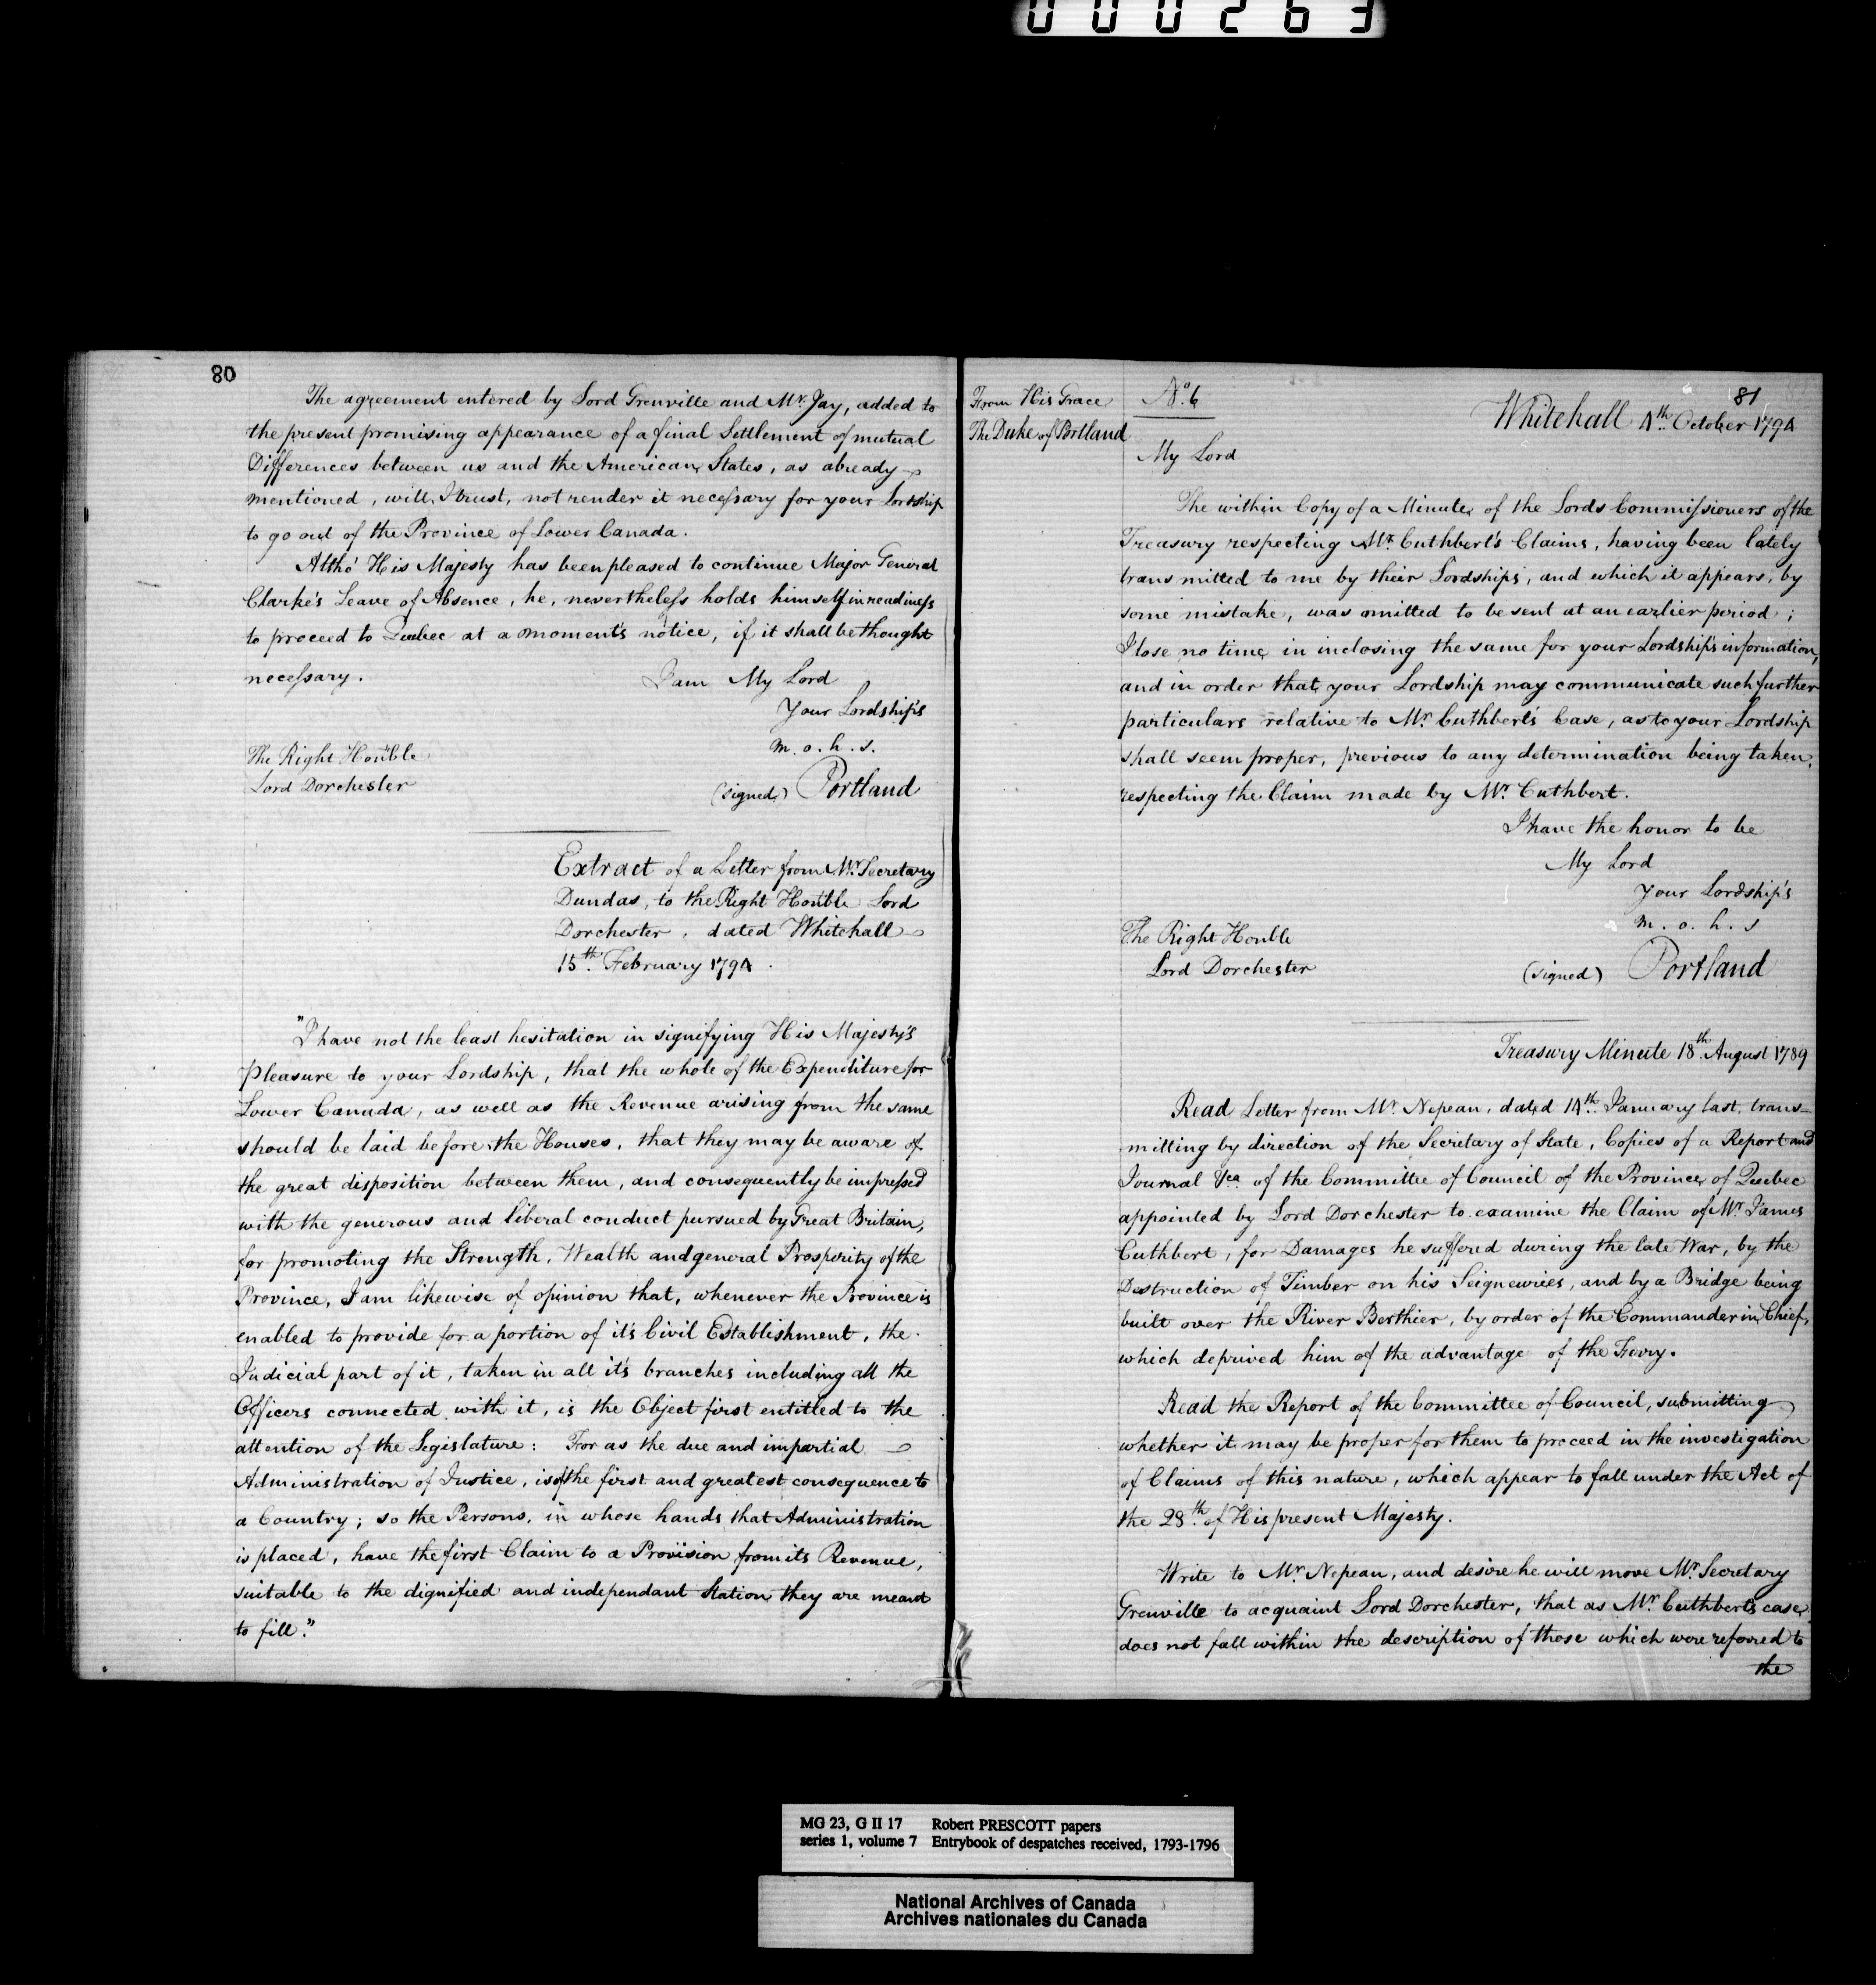 000263
80
The agreement entered by Lord Grenville and Mr. Jay, added to
the present promising appearance of a final Settlement of mutual
Differences between us and the American States, as already
mentioned, will, I trust, not render it necessary for your Lordship
to go out of the Province of Lower Canada.
Altho' His Majesty has been pleased to continue Major General
Clarke's Leave of Absence, he, nevertheless holds himself in readiness
to proceed to Quebec at a moment's notice, if it shall be thought
necessary.
I am My Lord
Your Lordship's
m. o. h. s.
The Right Honble
Lord Dorchester
(signed) Portland
Extract of a Letter from Mr. Secretary
Dundas, to the Right Honble Lord
Dorchester, dated Whitehall
15th. February 1794.
"I have not the least hesitation in signifying His Majesty's
Pleasure to your Lordship, that the whole of the Expenditure for
Lower Canada, as well as the Revenue arising from the same
should be laid before the Houses, that they may be aware of
the great disposition between them, and consequently be impressed
with the generous and liberal conduct pursued by Great Britain,
for promoting the Strength, Wealth and general Prosperity of the
Province, I am likewise of opinion that, whenever the Province is
enabled to provide for a portion of it's Civil Establishment, the
Judicial part of it, taken in all it's branches including all the
Officers connected with it, is the Object first entitled to the
attention of the Legislature: For as the due and impartial
Administration of Justice, is of the first and greatest consequence to
a Country; so the Persons, in whose hands that Administration
is placed, have the first Claim to a Provision from its Revenue,
suitable to the dignified and independant Station they are meant
to fill."
81
From His Grace
The Duke of Portland
No. 6
Whitehall 4th. October 1794
My Lord
The within Copy of a Minute of the Lords Commissioners of the
Treasury respecting Mr. Cuthbert's Claims, having been lately
transmitted to me by their Lordships, and which it appears, by
some mistake, was omitted to be sent at an earlier period;
I lose no time in inclosing the same for your Lordship's information,
and in order that your Lordship may communicate such further
particulars relative to Mr. Cuthbert's Case, as to your Lordship
shall seem proper, previous to any determination being taken,
respecting the Claim made by Mr. Cuthbert.
I have the honor to be
My Lord
Your Lordship's
m. o. h. s
The Right Honble
Lord Dorchester
(signed) Portland
Treasury Minute 18th. August 1789
Read Letter from Mr. Nepean, dated 14th. January last, trans=
mitting by direction of the Secretary of State, Copies of a Report and
Journal &ca of the Committee of Council of the Province of Quebec
appointed by Lord Dorchester to examine the Claim of Mr. James
Cuthbert, for Damages he suffered during the late War, by the
Destruction of Timber on his Seigneuries, and by a Bridge being
built over the River Berthier, by order of the Commander in Chief,
which deprived him of the advantage of the Ferry.
Read the Report of the Committee of Council, submitting
whether it may be proper for them to proceed in the investigation
of Claims of this nature, which appear to fall under the Act of
the 28th. of His present Majesty.
Write to Mr. Nepean, and desire he will move Mr. Secretary
Grenville to acquaint Lord Dorchester, that as Mr. Cuthbert's case
does not fall within the description of those which were referred to
the
MG 23, G II 17 Robert PRESCOTT papers
series 1, volume 7 Entrybook of despatches received, 1793-1796
National Archives of Canada
Archives nationales du Canada